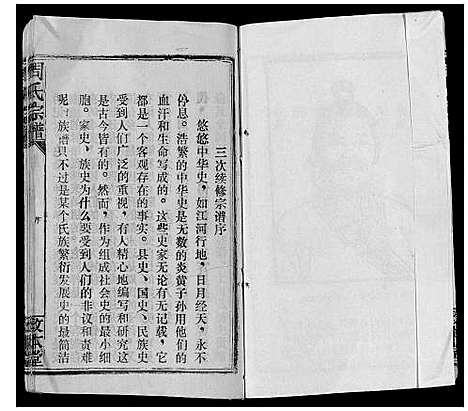 三次续修宗谱序
悠悠中华史，如江河行地，日月经天，永不
停息。浩繁的中华史是无数的炎黄子孙用他们的
血汗和生命写成的。这些史家无论有无记载，它
都是一个客观存在的事实。县史、国史、民族史
受到人们广泛的重视，有人精心地编写和研究这
是古今皆有的。然而，作为组成社会史的最小细
胞。家史、族史为什么要受到人们的非议和责难
呢，族谱只不过是某个氏族繁衍发展史的最简洁
周氏宗谱
序